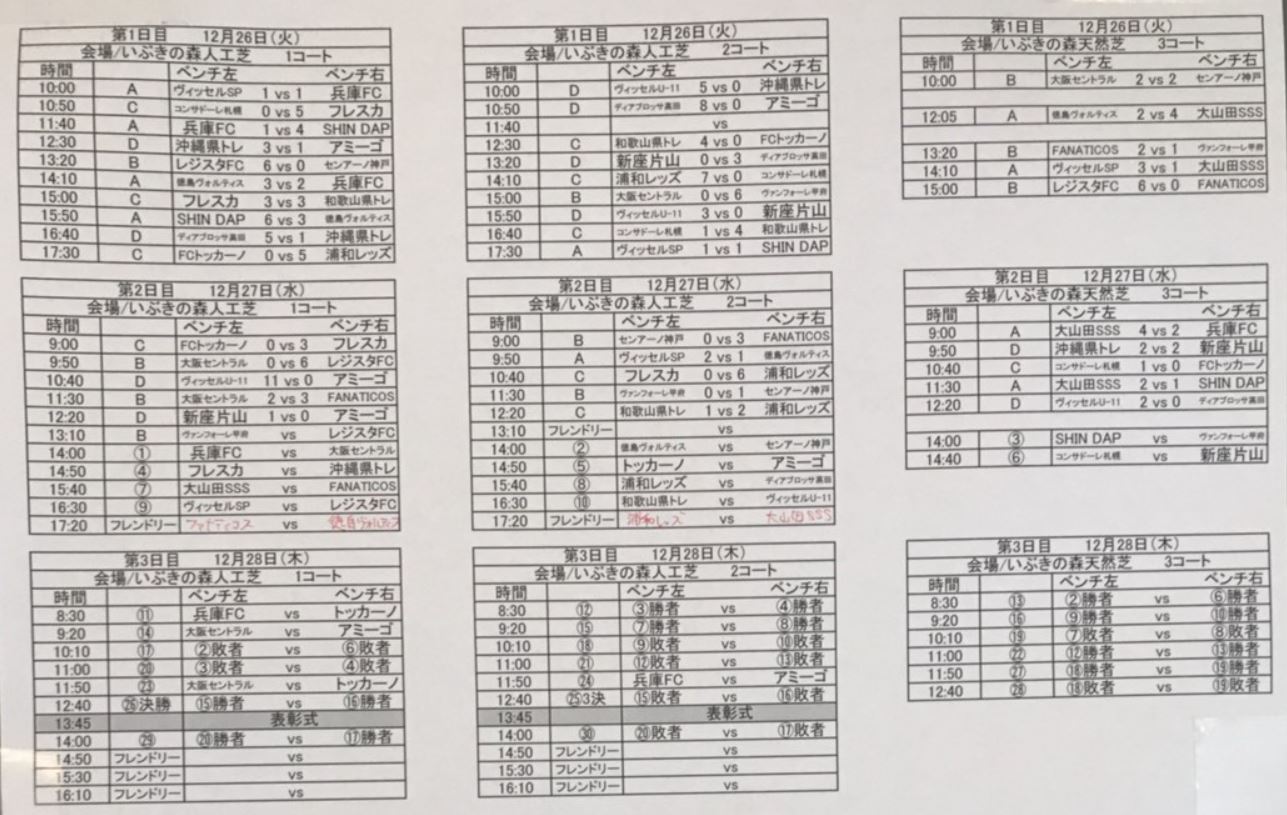 第1日目 12月26日(火)
会場/いぶきの森人工芝 1コート
時間 ベンチ左 ベンチ右
10:00 A ヴィッセルSP 1 vs 1 兵庫FC
10:50 C コンサドーレ札幌 0 vs 5 フレスカ
11:40 A 兵庫FC 1 vs 4 SHIN DAP
12:30 D 沖縄県トレ 3 vs 1 アミーゴ
13:20 B レジスタFC 6 vs 0 センアーノ神戸
14:10 A 徳島ヴォルティス 3 vs 2 兵庫FC
15:00 C フレスカ 3 vs 3 和歌山県トレ
15:50 A SHIN DAP 6 vs 3 徳島ヴォルティス
16:40 D ディアブロッサ高田 5 vs 1 沖縄県トレ
17:30 C FCトッカーノ 0 vs 5 浦和レッズ
第1日目 12月26日(火)
会場/いぶきの森人工芝 2コート
時間 ベンチ左 ベンチ右
10:00 D ヴィッセルU-11 5 vs 0 沖縄県トレ
10:50 D ディアブロッサ高田 8 vs 0 アミーゴ
11:40 vs
12:30 C 和歌山県トレ 4 vs 0 FCトッカーノ
13:20 D 新座片山 0 vs 3 ディアブロッサ高田
14:10 C 浦和レッズ 7 vs 0 コンサドーレ札幌
15:00 B 大阪セントラル 0 vs 6 ヴァンフォーレ甲府
15:50 D ヴィッセルU-11 3 vs 0 新座片山
16:40 C コンサドーレ札幌 1 vs 4 和歌山県トレ
17:30 A ヴィッセルSP 1 vs 1 SHIN DAP
第1日目 12月26日(火)
会場/いぶきの森天然芝 3コート
時間 ベンチ左 ベンチ右
10:00 B 大阪セントラル 2 vs 2 センアーノ神戸
12:05 A 徳島ヴォルティス 2 vs 4 大山田SSS
13:20 B FANATICOS 2 vs 1 ヴァンフォーレ甲府
14:10 A ヴィッセルSP 3 vs 1 大山田SSS
15:00 B レジスタFC 6 vs 0 FANATICOS
第2日目 12月27日(水)
会場/いぶきの森人工芝 1コート
時間 ベンチ左 ベンチ右
9:00 C FCトッカーノ 0 vs 3 フレスカ
9:50 B 大阪セントラル 0 vs 6 レジスタFC
10:40 D ヴィッセルU-11 11 vs 0 アミーゴ
11:30 B 大阪セントラル 2 vs 3 FANATICOS
12:20 D 新座片山 1 vs 0 アミーゴ
13:10 B ヴァンフォーレ甲府 vs レジスタFC
14:00 ① 兵庫FC vs 大阪セントラル
14:50 ④ フレスカ vs 沖縄県トレ
15:40 ⑦ 大山田SSS vs FANATICOS
16:30 ⑨ ヴィッセルSP vs レジスタFC
17:20 フレンドリー ファナティコス vs 徳島ヴォルティス
第2日目 12月27日(水)
会場/いぶきの森人工芝 2コート
時間 ベンチ左 ベンチ右
9:00 B センアーノ神戸 0 vs 3 FANATICOS
9:50 A ヴィッセルSP 2 vs 1 徳島ヴォルティス
10:40 C フレスカ 0 vs 6 浦和レッズ
11:30 B ヴァンフォーレ甲府 0 vs 1 センアーノ神戸
12:20 C 和歌山県トレ 1 vs 2 浦和レッズ
13:10 フレンドリー vs
14:00 ② 徳島ヴォルティス vs センアーノ神戸
14:50 ⑤ トッカーノ vs アミーゴ
15:40 ⑧ 浦和レッズ vs ディアブロッサ高田
16:30 ⑩ 和歌山県トレ vs ヴィッセルU-11
17:20 フレンドリー 浦和レッズ vs 大山田SSS
第2日目 12月27日(水)
会場/いぶきの森天然芝 3コート
時間 ベンチ左 ベンチ右
9:00 A 大山田SSS 4 vs 2 兵庫FC
9:50 D 沖縄県トレ 2 vs 2 新座片山
10:40 C コンサドーレ札幌 1 vs 0 FCトッカーノ
11:30 A 大山田SSS 2 vs 1 SHIN DAP
12:20 D ヴィッセルU-11 2 vs 0 ディアブロッサ高田
14:00 ③ SHIN DAP vs ヴァンフォーレ甲府
14:40 ⑥ コンサドーレ札幌 vs 新座片山
第3日目 12月28日(木)
会場/いぶきの森人工芝 1コート
時間 ベンチ左 ベンチ右
8:30 ⑪ 兵庫FC vs トッカーノ
9:20 ⑭ 大阪セントラル vs アミーゴ
10:10 ⑰ ②敗者 vs ⑥敗者
11:00 ⑳ ③敗者 vs ④敗者
11:50 ㉓ 大阪セントラル vs トッカーノ
12:40 ㉖決勝 ⑮勝者 vs ⑯勝者
13:45 表彰式
14:00 ㉙ ⑳勝者 vs ⑰勝者
14:50 フレンドリー vs
15:30 フレンドリー vs
16:10 フレンドリー vs
第3日目 12月28日(木)
会場/いぶきの森人工芝 2コート
時間 ベンチ左 ベンチ右
8:30 ⑫ ③勝者 vs ④勝者
9:20 ⑮ ⑦勝者 vs ⑧勝者
10:10 ⑱ ⑨敗者 vs ⑩敗者
11:00 ㉑ ⑫敗者 vs ⑬敗者
11:50 ㉔ 兵庫FC vs アミーゴ
12:40 ㉕3決 ⑮敗者 vs ⑯敗者
13:45 表彰式
14:00 ㉚ ⑳敗者 vs ⑰敗者
14:50 フレンドリー vs
15:30 フレンドリー vs
16:10 フレンドリー vs
第3日目 12月28日(木)
会場/いぶきの森天然芝 3コート
時間 ベンチ左 ベンチ右
8:30 ⑬ ②勝者 vs ⑥勝者
9:20 ⑯ ⑨勝者 vs ⑩勝者
10:10 ⑲ ⑦敗者 vs ⑧敗者
11:00 ㉒ ⑫勝者 vs ⑬勝者
11:50 ㉗ ⑱勝者 vs ⑲勝者
12:40 ㉘ ⑱敗者 vs ⑲敗者